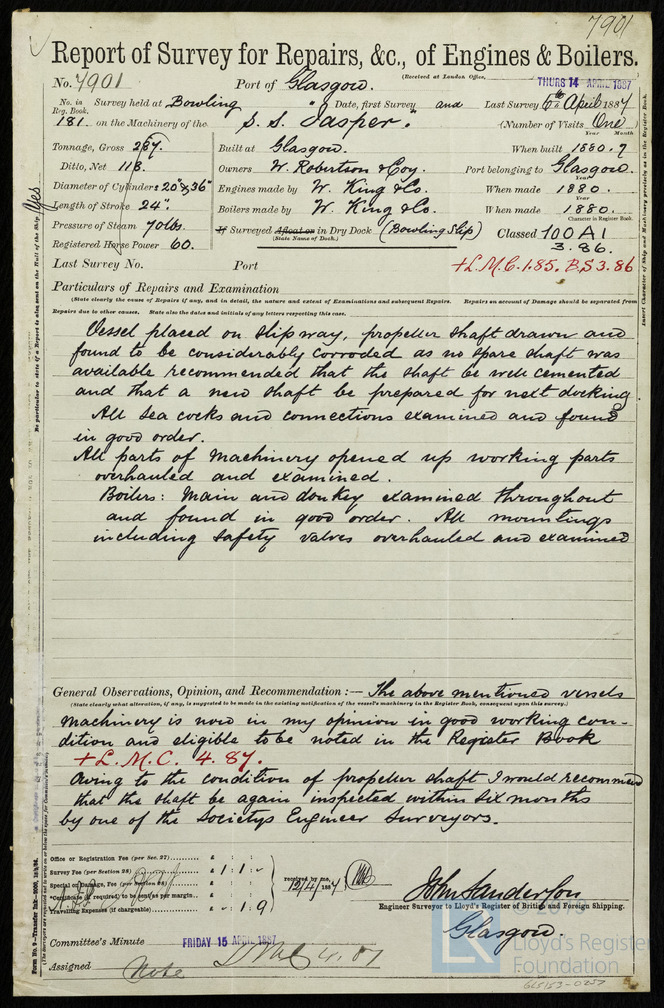 7901
Report of Survey for Repairs, &c., of Engines & Boilers.
(Received at London Office, THURS 14 APRIL 1887
No. 7901 Port of Glasgow.
No. in Reg. Book. Survey held at Bowling Date, first Survey and Last Survey 6th April 1887
181 on the Machinery of the S. S. "Jasper". (Number of Visits One)
Tonnage, Gross 287. Built at Glasgow. When built 1880.7
Ditto, Net 118. Owners W. Robertson & Coy. Port belonging to Glasgow.
Diameter of Cylinders 20" & 36" Engines made by W. King & Co. When made 1880.
Length of Stroke 24". Boilers made by W. King & Co. When made 1880.
Pressure of Steam 70 lbs. If Surveyed Afloat or in Dry Dock (Bowling Slip) Classed 100 A1
(State Name of Dock.) Character in Register Book.
Registered Horse Power 60. 3.86.
Last Survey No. Port +L.M.C. 1.85. B.S 3.86
Particulars of Repairs and Examination
(State clearly the cause of Repairs if any, and in detail, the nature and extent of Examinations and subsequent Repairs. Repairs on account of Damage should be separated from
Repairs due to other causes. State also the dates and initials of any letters respecting this case.
Vessel placed on slipway, propeller shaft drawn and
found to be considerably corroded as no spare shaft was
available recommended that the shaft be well cemented
and that a new shaft be prepared for next docking
All sea cocks and connections examined and found
in good order.
All parts of machinery opened up working parts
overhauled and examined.
Boilers: Main and donkey examined throughout
and found in good order. All mountings
including safety valves overhauled and examined
General Observations, Opinion, and Recommendation :— The above mentioned vessels
(State clearly what alteration, if any, is suggested to be made in the existing notification of the vessel's machinery in the Register Book, consequent upon this survey.)
machinery is now in my opinion in good working con-
dition and eligible to be noted in the Register Book
+L.M.C. 4.87.
Owing to the condition of propeller shaft I would recommend
that the shaft be again inspected within six months
by one of the Societys Engineer Surveyors.
Office or Registration Fee (per Sec. 27)
Survey Fee (per Section 28) £ 1 : 1 :
Special or Damage Fee (per Section 28)
Certificate (if required) to be sent as per margin
Travelling Expenses (if chargeable) £ 1 : 9
received by me, 12/4/1887
John Sanderson
Engineer Surveyor to Lloyd's Register of British and Foreign Shipping.
Glasgow.
Committee's Minute FRIDAY 15 APRIL 1887
Assigned Note LMC 4.87
Yes
Form No. 9—Transfer Ink
Lloyd's Register
Foundation
GLS153-0257